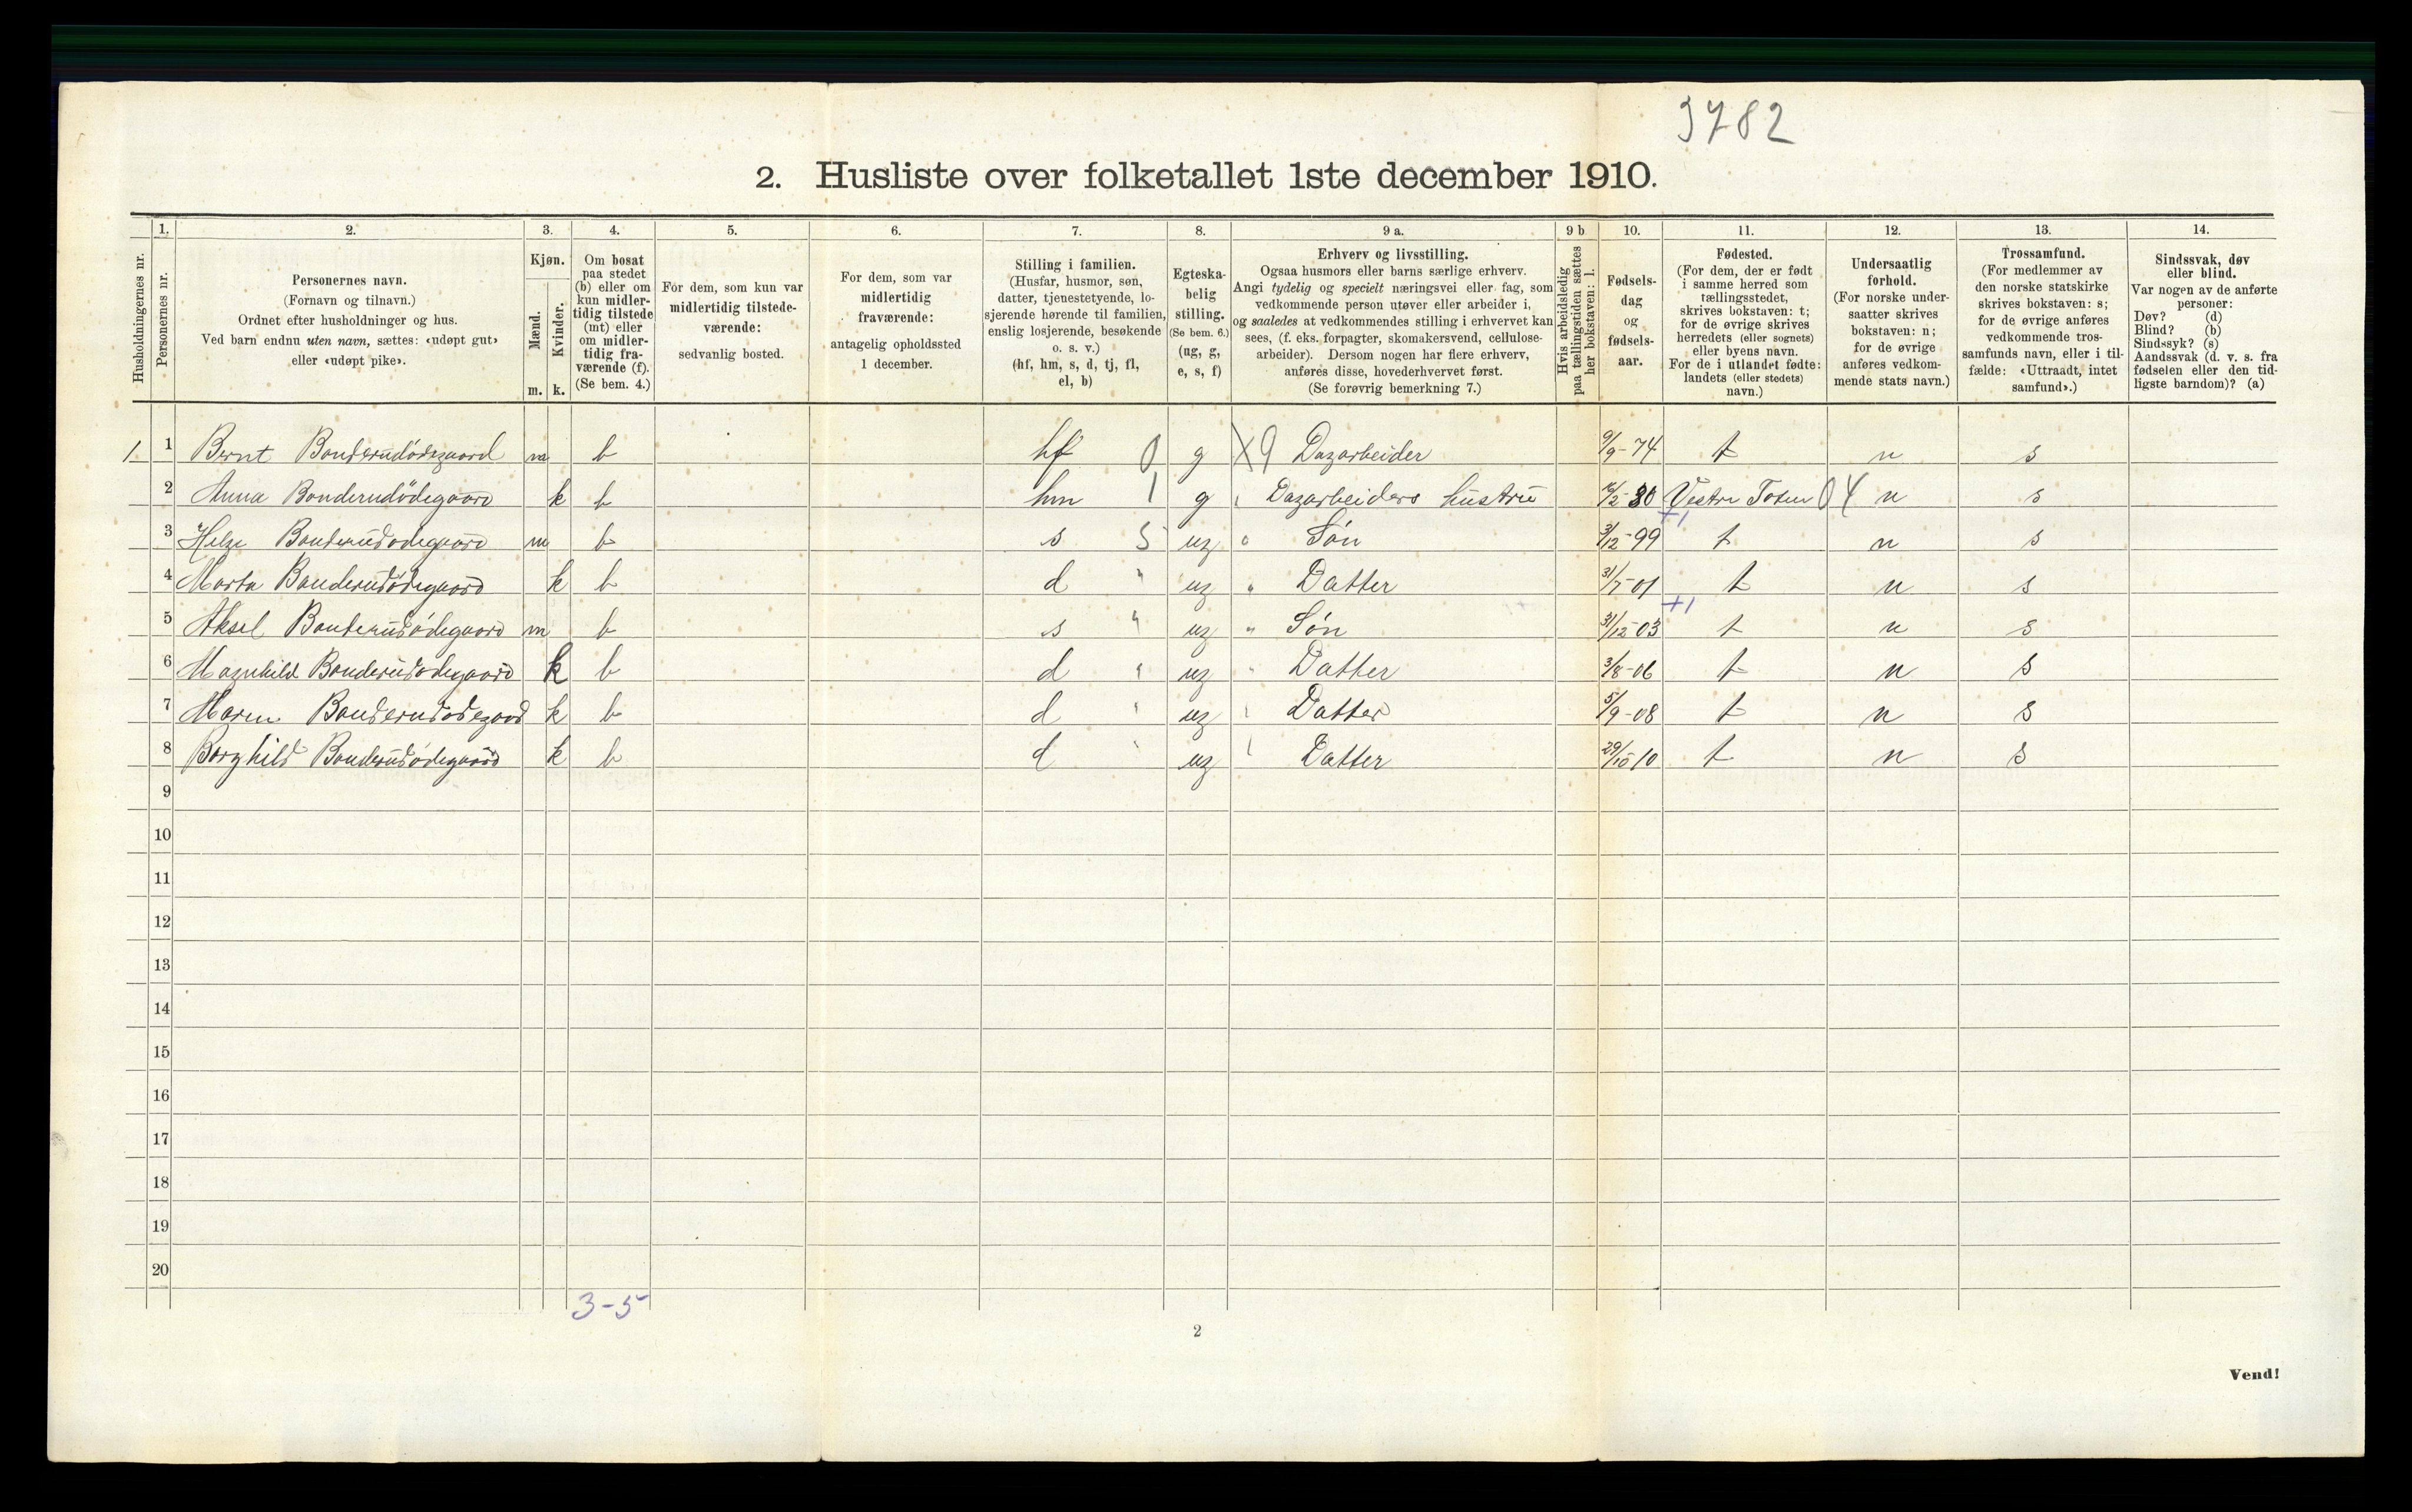 3782
2. Husliste over folketallet 1ste december 1910.
1. 2. 3. 4. 5. 6. 7. 8. 9 a. 9 b 10. 11. 12. 13. 14.
Husholdningernes nr.
Personernes nr.
Personernes navn.
(Fornavn og tilnavn.)
Ordnet efter husholdninger og hus.
Ved barn endnu uten navn, sættes: «udøpt gut»
eller «udøpt pike».
Kjøn.
Mænd.
Kvinder.
m. k.
Om bosat
paa stedet
(b) eller om
kun midler-
tidig tilstede
(mt) eller
om midler-
tidig fra-
værende (f).
(Se bem. 4.)
For dem, som kun var
midlertidig tilstede-
værende:
sedvanlig bosted.
For dem, som var
midlertidig
fraværende:
antagelig opholdssted
1 december.
Stilling i familien.
(Husfar, husmor, søn,
datter, tjenestetyende, lo-
sjerende hørende til familien,
enslig losjerende, besøkende
o. s. v.)
(hf, hm, s, d, tj, fl,
el, b)
Egteska-
belig
stilling.
(Se bem. 6.)
(ug, g,
e, s, f)
Erhverv og livsstilling.
Ogsaa husmors eller barns særlige erhverv.
Angi tydelig og specielt næringsvei eller fag, som
vedkommende person utøver eller arbeider i,
og saaledes at vedkommendes stilling i erhvervet kan
sees, (f. eks. forpagter, skomakersvend, cellulose-
arbeider). Dersom nogen har flere erhverv,
anføres disse, hovederhvervet først.
(Se forøvrig bemerkning 7.)
Hvis arbeidsledig
paa tællingstiden sættes
her bokstaven: l.
Fødsels-
dag
og
fødsels-
aar.
Fødested.
(For dem, der er født
i samme herred som
tællingsstedet,
skrives bokstaven: t;
for de øvrige skrives
herredets (eller sognets)
eller byens navn.
For de i utlandet fødte:
landets (eller stedets)
navn.)
Undersaatlig
forhold.
(For norske under-
saatter skrives
bokstaven: n;
for de øvrige
anføres vedkom-
mende stats navn.)
Trossamfund.
(For medlemmer av
den norske statskirke
skrives bokstaven: s;
for de øvrige anføres
vedkommende tros-
samfunds navn, eller i til-
fælde: «Uttraadt, intet
samfund».)
Sindssvak, døv
eller blind.
Var nogen av de anførte
personer:
Døv? (d)
Blind? (b)
Sindssyk? (s)
Aandssvak (d. v. s. fra
fødselen eller den tid-
ligste barndom)? (a)
1 1 Bernt Bonderudødegaard m b hf 0 g X9 Dagarbeider 9/9-74 t n s
2 Anna Bonderudødegaard k b hm 1 g Dagarbeiders hustru 80 Vestre Toten 04 n s
3 Helge Bonderudødegaard m b s 5 ug " Søn 3/12-99 +1 t n s
4 Marta Bonderudødegaard k b d " ug " Datter 01 t n s
5 Aksel Bonderudødegaard m b s " ug " Søn 31/12-03 +1 t n s
6 Magnhild Bonderudødegaard k b d " ug " Datter 3/8-06 t n s
7 Maren Bonderudødegaard k b d " ug " Datter 5/9-08 t n s
8 Borghild Bonderudødegaard k b d " ug " Datter 29/10 10 t n s
9
10
11
12
13
14
15
16
17
18
19
20
3-5
2
Vend!